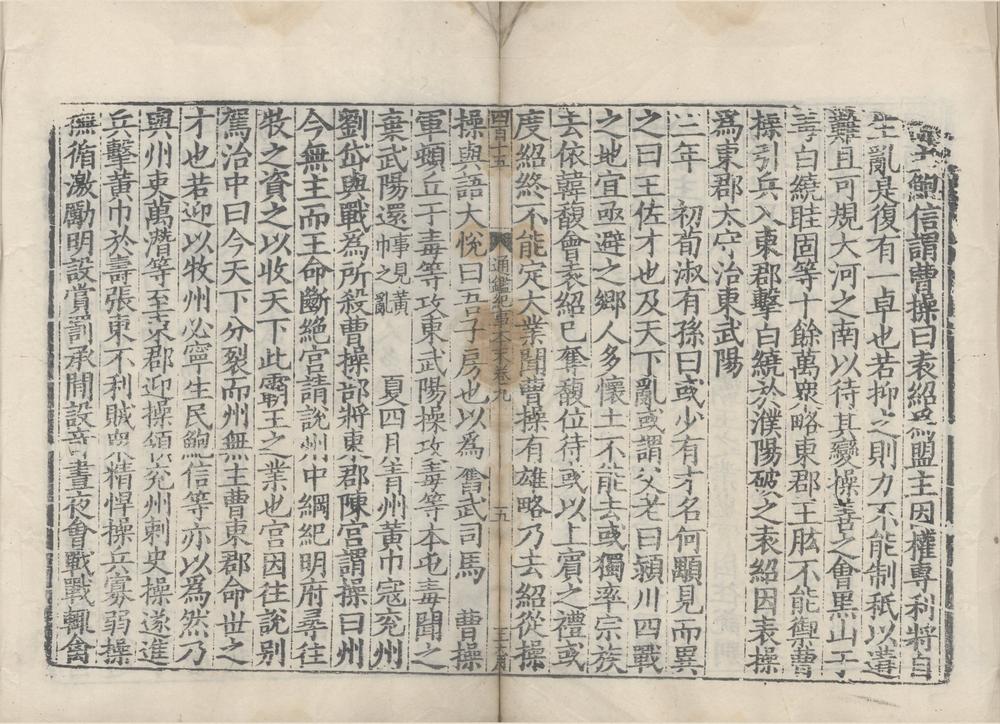 鮑信謂曹操曰袁紹爲盟主因權專利將自
生亂是復有一卓也若抑之則力不能制秖以遘
難且可規大河之南以待其變操善之會黑山于
毒白繞眭固等十餘萬衆略東郡王肱不能禦曹
操引兵入東郡擊白繞於濮陽破之袁紹因表操
爲東郡太守治東武陽
三年 初荀淑有孫曰彧少有才名何顒見而異
之曰王佐才也及天下亂彧謂父老曰潁川四戰
之地宜亟避之鄉人多懷土不能去彧獨率宗族
去依韓馥會袁紹已奪馥位待彧以上賓之禮彧
度紹終不能定大業聞曹操有雄略乃去紹從操
四百十五 通鑑紀事本末卷九 五
操與語大悅曰吾子房也以爲奮武司馬 曹操
軍頓丘于毒等攻東武陽操攻毒等本屯毒聞之
棄武陽還事見黃巾之亂 夏四月青州黃巾寇兖州
劉岱與戰爲所殺曹操部將東郡陳宮謂操曰州
今無主而王命斷絕宮請說州中綱紀明府尋往
牧之資之以收天下此霸王之業也宮因往說别
駕治中曰今天下分裂而州無主曹東郡命世之
才也若迎以牧州必寧生民鮑信等亦以爲然乃
與州吏萬潛等至東郡迎操領兖州刺史操遂進
兵擊黃巾於壽張東不利賊衆精悍操兵寡弱操
撫循激勵明設賞罰承間設竒晝夜會戰戰輒禽